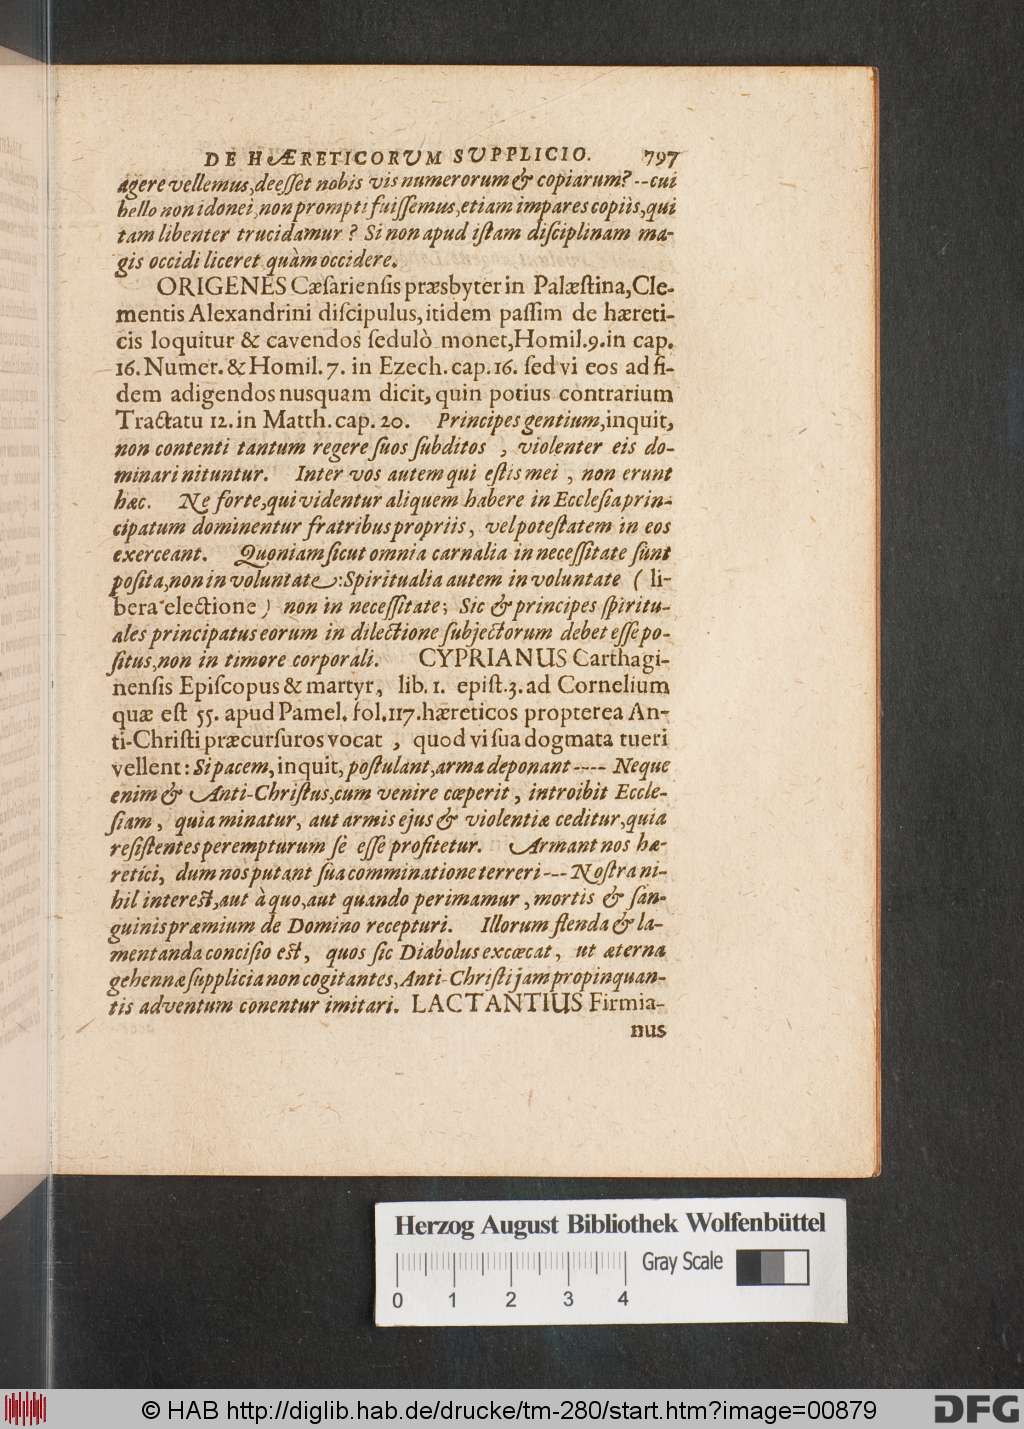 DE HÆRETICORUM SUPPLICIO. 797
agere vellemus, deeſſet nobis vis numerorum & copiarum? --cui
bello non idonei, non prompti fuiſſemus, etiam impares copiis, qui
tam libenter trucidamur? Si non apud iſtam diſciplinam ma-
gis occidi liceret quàm occidere.
ORIGENES Cæſarienſis præsbyter in Palæſtina, Cle-
mentis Alexandrini diſcipulus, itidem paſſim de hæreti-
cis loquitur & cavendos ſedulò monet, Homil. 9. in cap.
16. Numer. & Homil. 7. in Ezech. cap. 16. ſed vi eos ad fi-
dem adigendos nusquam dicit, quin potius contrarium
Tractatu 12. in Matth. cap. 20. Principes gentium, inquit,
non contenti tantum regere ſuos ſubditos, violenter eis do-
minari nituntur. Inter vos autem qui eſtis mei, non erunt
hæc. Ne forte, qui videntur aliquem habere in Eccleſia prin-
cipatum dominentur fratribus propriis, vel poteſtatem in eos
exerceant. Quoniam ſicut omnia carnalia in neceſſitate ſunt
poſita, non in voluntate: Spiritualia autem in voluntate (li-
bera electione) non in neceſſitate; Sic & principes ſpiritu-
ales principatus eorum in dilectione ſubjectorum debet eſſe po-
ſitus, non in timore corporali. CYPRIANUS Carthagi-
nenſis Epiſcopus & martyr, lib. 1. epiſt. 3. ad Cornelium
quæ eſt 55. apud Pamel. fol. 117. hæreticos propterea An-
ti-Chriſti præcurſuros vocat, quod vi ſua dogmata tueri
vellent: Si pacem, inquit, poſtulant, arma deponant ---- Neque
enim & Anti-Chriſtus, cum venire cœperit, introibit Eccle-
ſiam, quia minatur, aut armis ejus & violentiæ ceditur, quia
reſiſtentes perempturum ſe eſſe profitetur. Armant nos hæ-
retici, dum nos putant ſua comminatione terreri --- Noſtra ni-
hil intereſt, aut à quo, aut quando perimamur, mortis & ſan-
guinis præmium de Domino recepturi. Illorum flenda & la-
mentanda conciſio eſt, quos ſic Diabolus excœcat, ut æterna
gehennæ ſupplicia non cogitantes, Anti-Chriſti jam propinquan-
tis adventum conentur imitari. LACTANTIUS Firmia-
nus
Herzog August Bibliothek Wolfenbüttel
Gray Scale
0 1 2 3 4
© HAB http://diglib.hab.de/drucke/tm-280/start.htm?image=00879
DFG